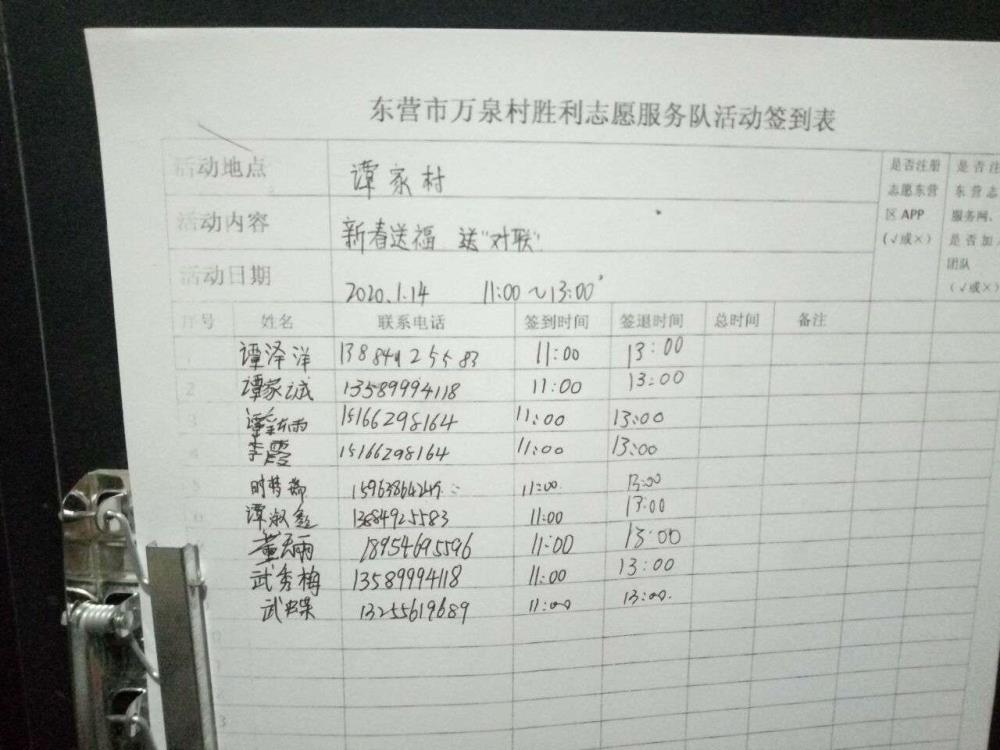 东营市万泉村胜利志愿服务队活动签到表
活动地点 谭家村
活动内容 新春送福 送"对联"
活动日期 2020.1.14 11:00～13:00
是否注册
志愿东营
区APP
(√或×)
是否注
东营志
服务网、
是否加入
团队
(√或×)
序号 姓名 联系电话 签到时间 签退时间 总时间 备注
1 谭泽洋 13884925583 11:00 13:00
2 谭家诚 13589994118 11:00 13:00
3 谭新雨 15166298164 11:00 13:00
4 李霞 15166298164 11:00 13:00
5 11:00 13:00
6 谭淑 13884925583 11:00 13:00
董天雨 18954695596 11:00 13:00
武秀梅 13589994118 11:00 13:00
武 13255619689 11:00 13:00